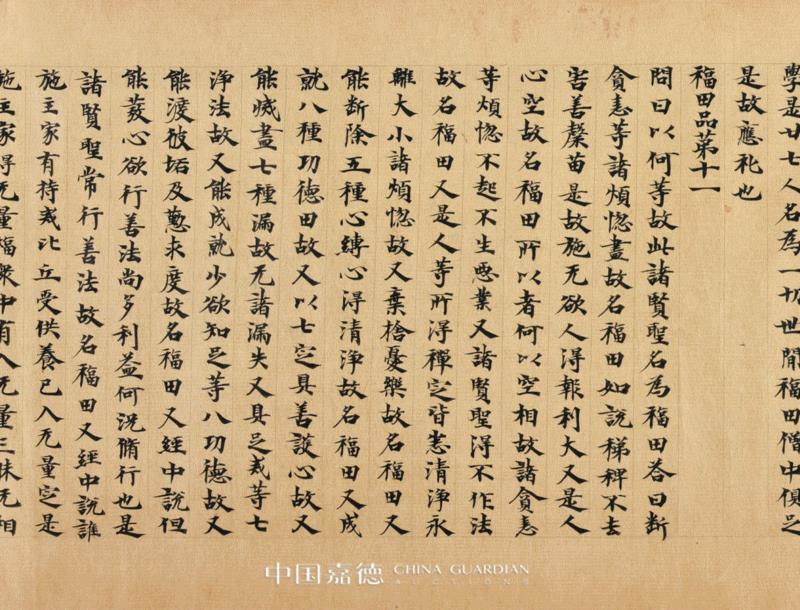 學是廿七人名為一切世間福田僧中俱足
是故應礼也
福田品第十一
問曰以何等故此諸賢聖名為福田答曰断
貪恚等諸煩惚盡故名福田如說稊稗不去
害善糵苗是故施无欲人得報利大又是人
心空故名福田所以者何以空相故諸貪恚
等煩惚不起不生惡業又諸賢聖得不作法
故名福田又是人等所得禪定皆悉清淨永
離大小諸煩惚故又棄捨憂樂故名福田又
能断除五種心縛心得清淨故名福田又成
就八種功德田故又以七定具善護心故又
能滅盡七種漏故无諸漏失又具足戒等七
淨法故又能成就少欲知足等八功德故又
能渡彼垢及懃求度故名福田又經中說但
能發心欲行善法尚多利益何況脩行也是
諸賢聖常行善法故名福田又經中說誰
施主家有持戒比丘受供養已入无量定是
施主家得无量福衆中有入无量三昧无相
中国嘉德 CHINA GUARDIAN
AUCTIONS